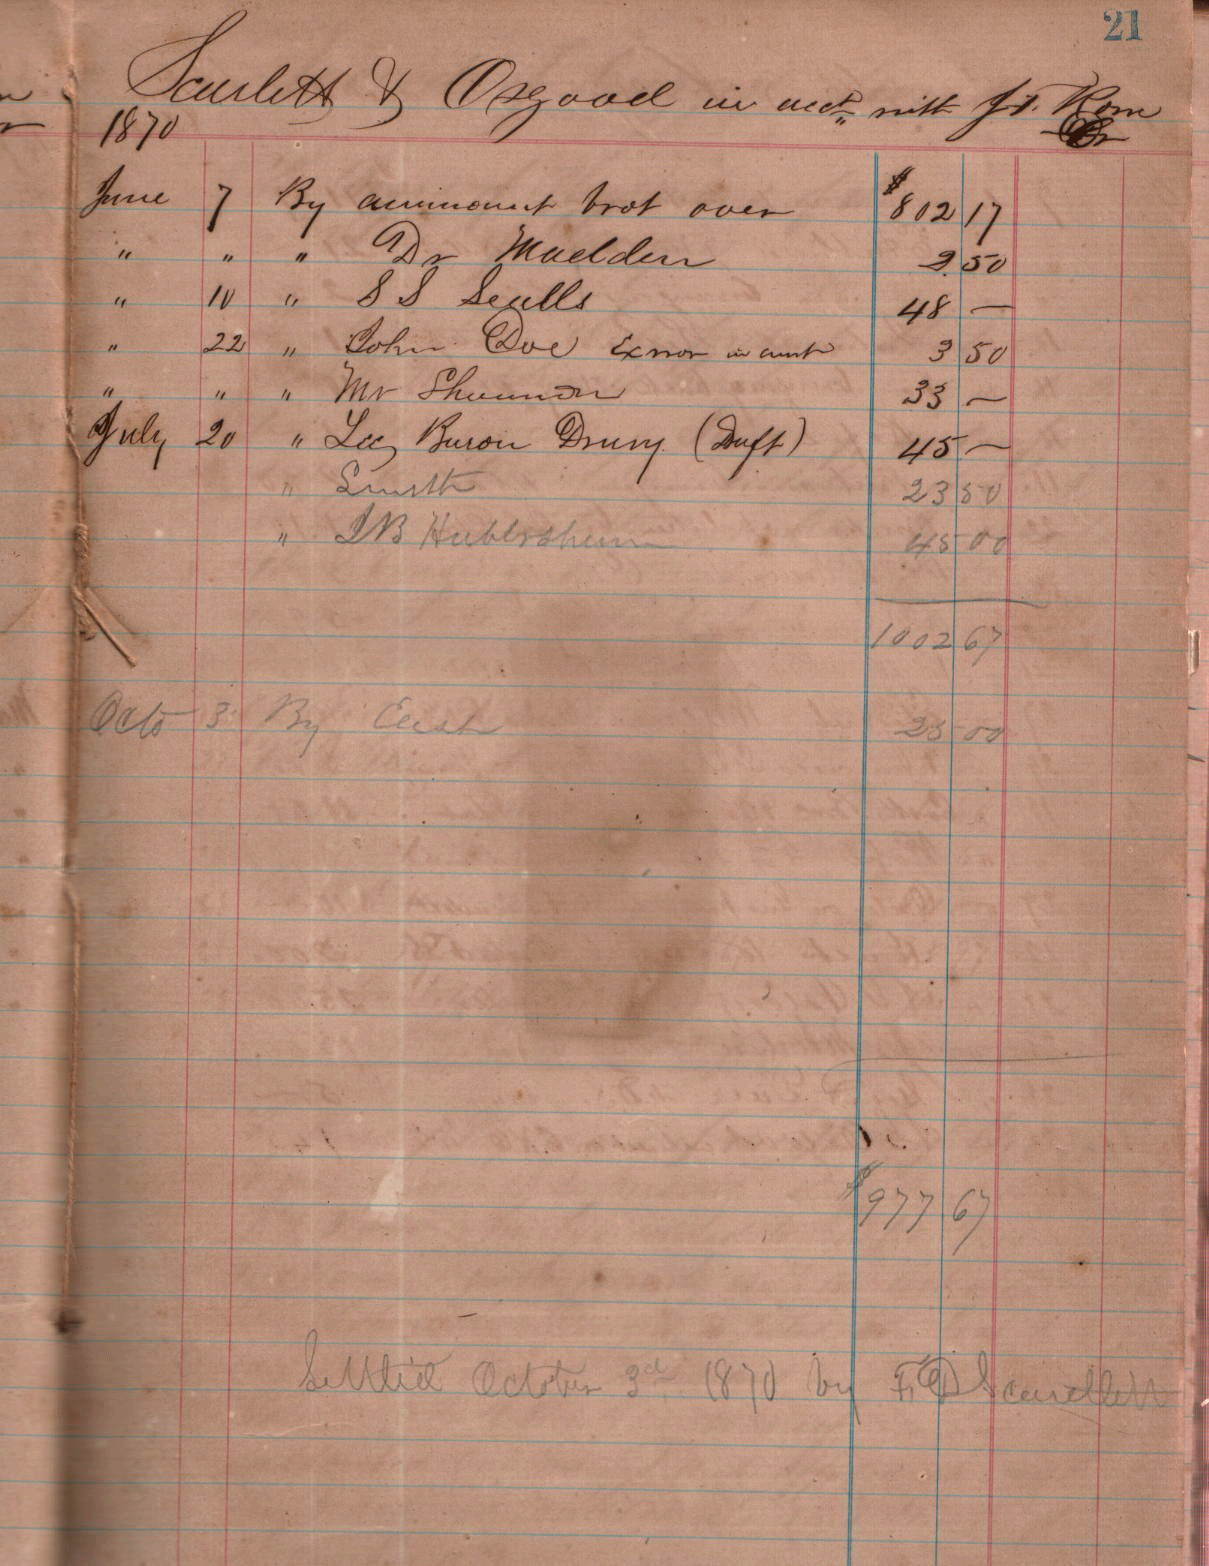 21
Scarlett & Osgood in acct with
1870
June 7 By ammount brot over $802 17
" " " Dr Madden 2 50
" 10 " S S Sculls 48 —
" 22 " John Doe Error in amt 3 50
" " " Mr Shannon 33 —
July 20 " Baron Drury (Duft) 45 —
" Smith 23 50
" 45 00
1002 67
Octo 3 By Cash 25 00
$977 67
Settled October 3d 1870 by Scarlett